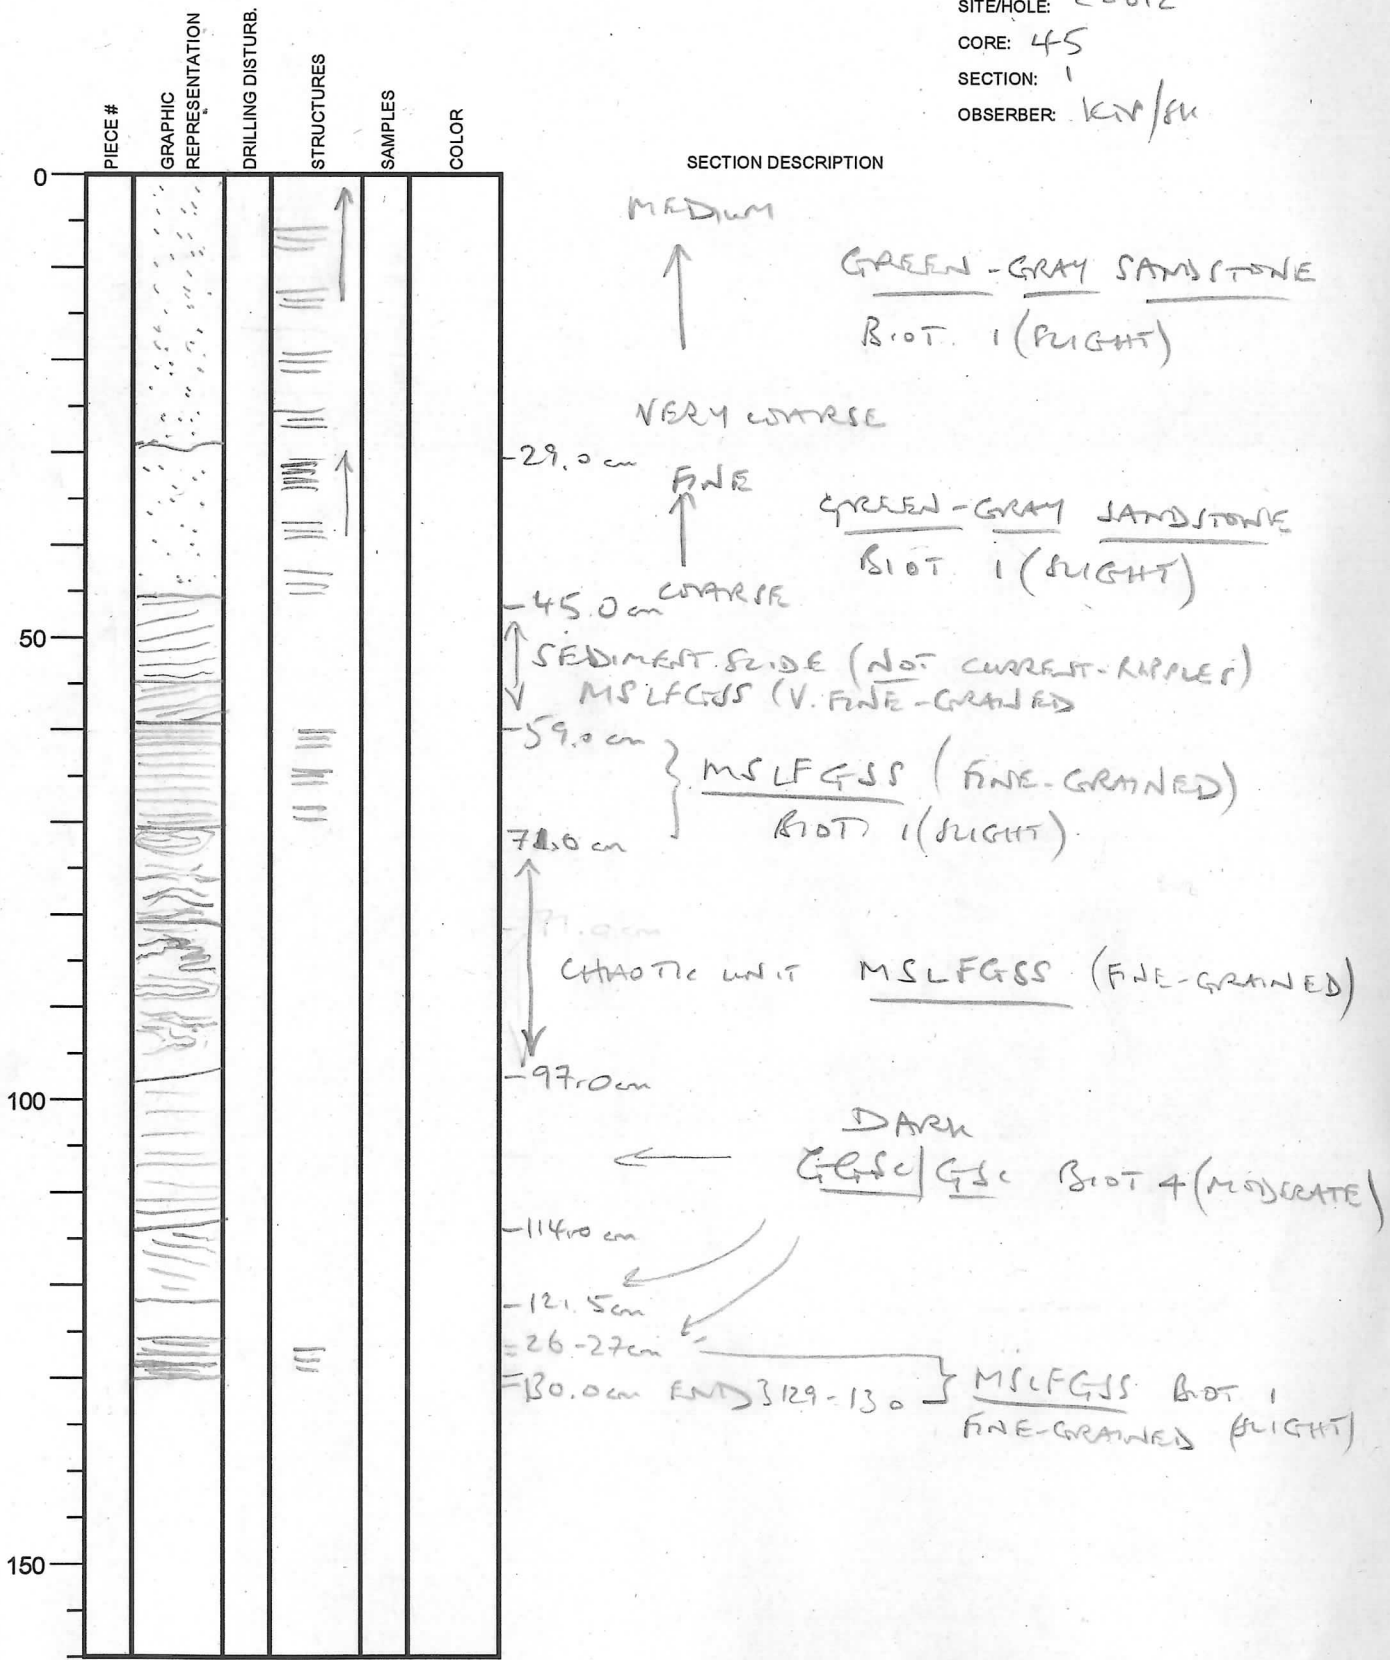 SITE/HOLE:
CORE: 45
SECTION: 1
OBSERBER:
PIECE #
GRAPHIC
REPRESENTATION
DRILLING DISTURB.
STRUCTURES
SAMPLES
COLOR
SECTION DESCRIPTION
0
MEDIUM
GREEN-GRAY SANDSTONE
BIOT. 1 (SLIGHT)
VERY COARSE
-29.0 cm
FINE
GREEN-GRAY SANDSTONE
BIOT 1 (SLIGHT)
COARSE
-45.0 cm
50
SEDIMENT SLIDE (NOT CURRENT-RIPPLES)
MSLFGSS (V. FINE-GRAINED
-59.0 cm
MSLFGSS (FINE-GRAINED)
BIOT 1 (SLIGHT).
71.0 cm
CHAOTIC UNIT MSLFGSS (FINE-GRAINED)
-97.0 cm
100
DARK
GGSC/GSC BIOT 4 (MODERATE)
-114.0 cm
-121.5 cm
=26-27 cm
=130.0 cm END } 129-130 } MSLFGSS BIOT 1
FINE-GRAINED (SLIGHT)
150